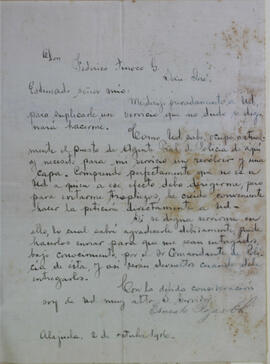 Don
Federico Tinoco G.
Estimado señor mio:
Me dirijo privadamente a Ud
para suplicarle un servicio que no dudo se dig
nará hacerme.
Como Ud sabe, ocupo actual
mente el puesto de Agente Ppal de Policía de aquí
y necesito para mi servicio un revolver y una
capa. Comprendo perfectamente que no es a
Ud a quien a ese efecto debo dirigirme, pero
para evitarme tropiezos, he creido conveniente
hacer la petición directamente a Ud
Si se digna servirme en
ello, lo cual sabré agradecerle debidamente, puede
hacerlos enviar para que me sean entregados,
bajo conocimiento, por el Sr Comandante de Poli
cía de ésta, y así serán devueltos cuando deba
entregarlos.
Con la debida consideración
soy de Ud muy atto. S. servidor
Ernesto
Alajuela, 2 de octubre